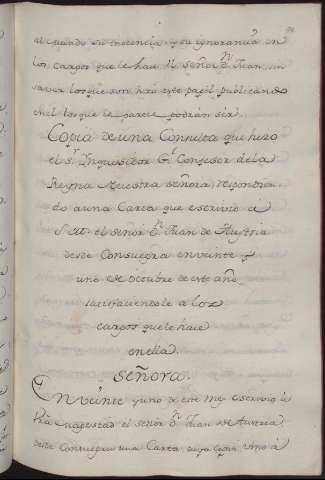 alegando su inocencia, y su ignorancia en
los cargos que le hace el señor Dn. Juan, sin
saver los que son hizo este papel publicando
en el los que le parece podrán ser.
Copia de una Consulta que hizo
el sr. Inquisidor Gl. Confesor de la
Reyna Nuestra señora, respondien
do a una Carta que escrivió a
S. M. el señor Dn. Juan de Austria
desde Consuegra en veinte y
uno de octubre de este año
satisfaciendole a los
cargos que le hace
en ella.
Señora.
En veinte y uno de este mes escrivio à
Vra Magestad el señor Dn. Juan de Austria
desde Consuegra una Carta, cuya copia vino à